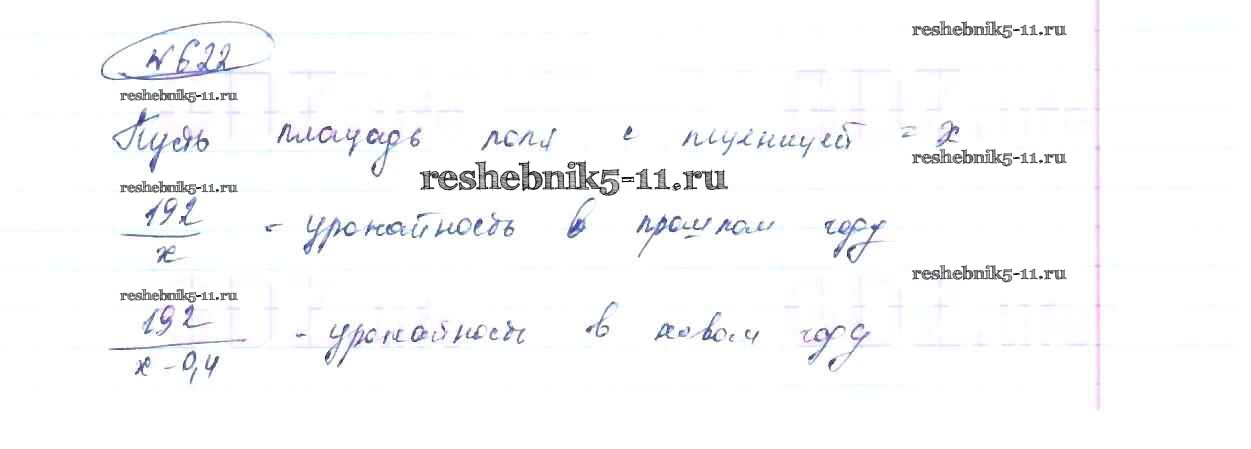 reshebnik5-11.ru
№622
reshebnik5-11.ru
Пусть площадь поля с пшеницей = x
reshebnik5-11.ru
reshebnik5-11.ru
reshebnik5-11.ru
192/x - урожайность в прошлом году
reshebnik5-11.ru
reshebnik5-11.ru
192/x-0,4 - урожайность в новом году